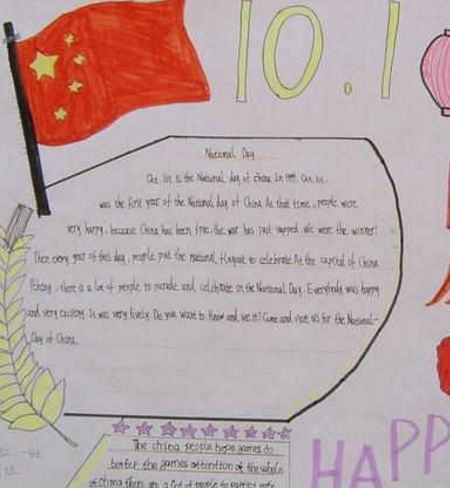 10.1
National Day
Oct. 1st is the National day of China In 1949. Oct. 1st.
was the first year of the National day of China At that time, people were
very happy, because China had been free, the war has just stopped. We were the winner!
Then every year of this day, people put the national to celebrate At the capital of China
there is a lot of people to parade and celebrate on the National Day. Everybody was happy
and very exciting. It was very lively. Do you want to know and see it? Come and visit us for the National-
Day of China.
The china people hope games do
better the games attention of the whole
of china
HAPP